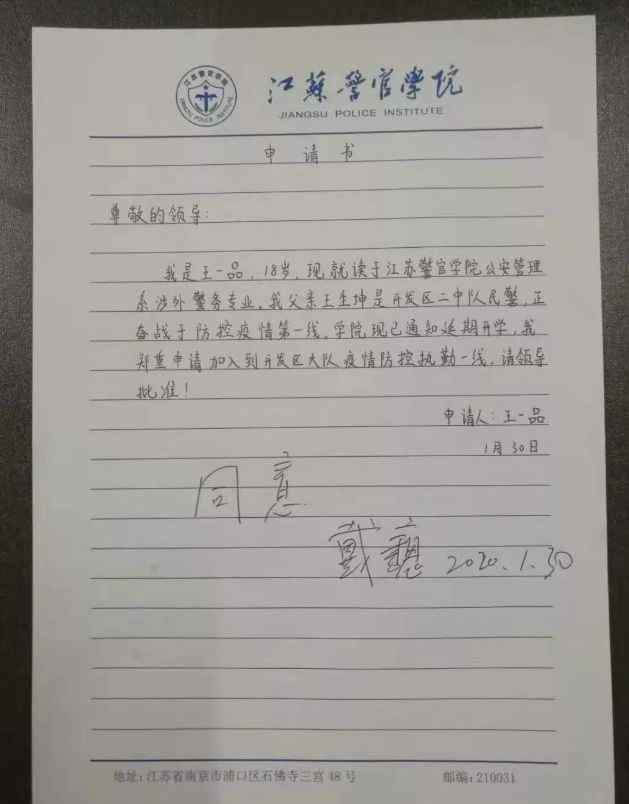 江苏警官学院
JIANGSU POLICE INSTITUTE
江蘇警官學院
JIANGSU POLICE INSTITUTE
申请书
尊敬的领导:
我是王一品,18岁,现就读于江苏警官学院公安管理
系涉外警务专业。我父亲王生坤是开发区二中队民警,正
奋战于防控疫情第一线。学院现已通知延期开学,我
郑重申请加入到开发区大队疫情防控执勤一线,请领导
批准!
申请人:王一品
1月30日
同意
戴 2020.1.30
地址:江苏省南京市浦口区石佛寺三宫48号
邮编:210031